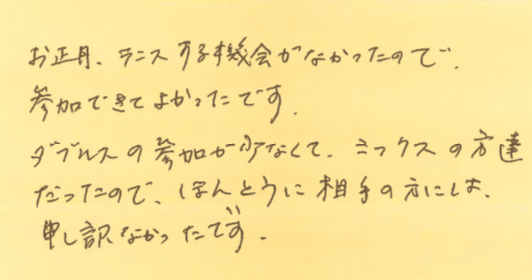 お正月、テニスする機会がなかったので、
参加できてよかったです。
ダブルスの参加が少なくて、ミックスの方達
だったので、ほんとうに相手の方には、
申し訳なかったです。